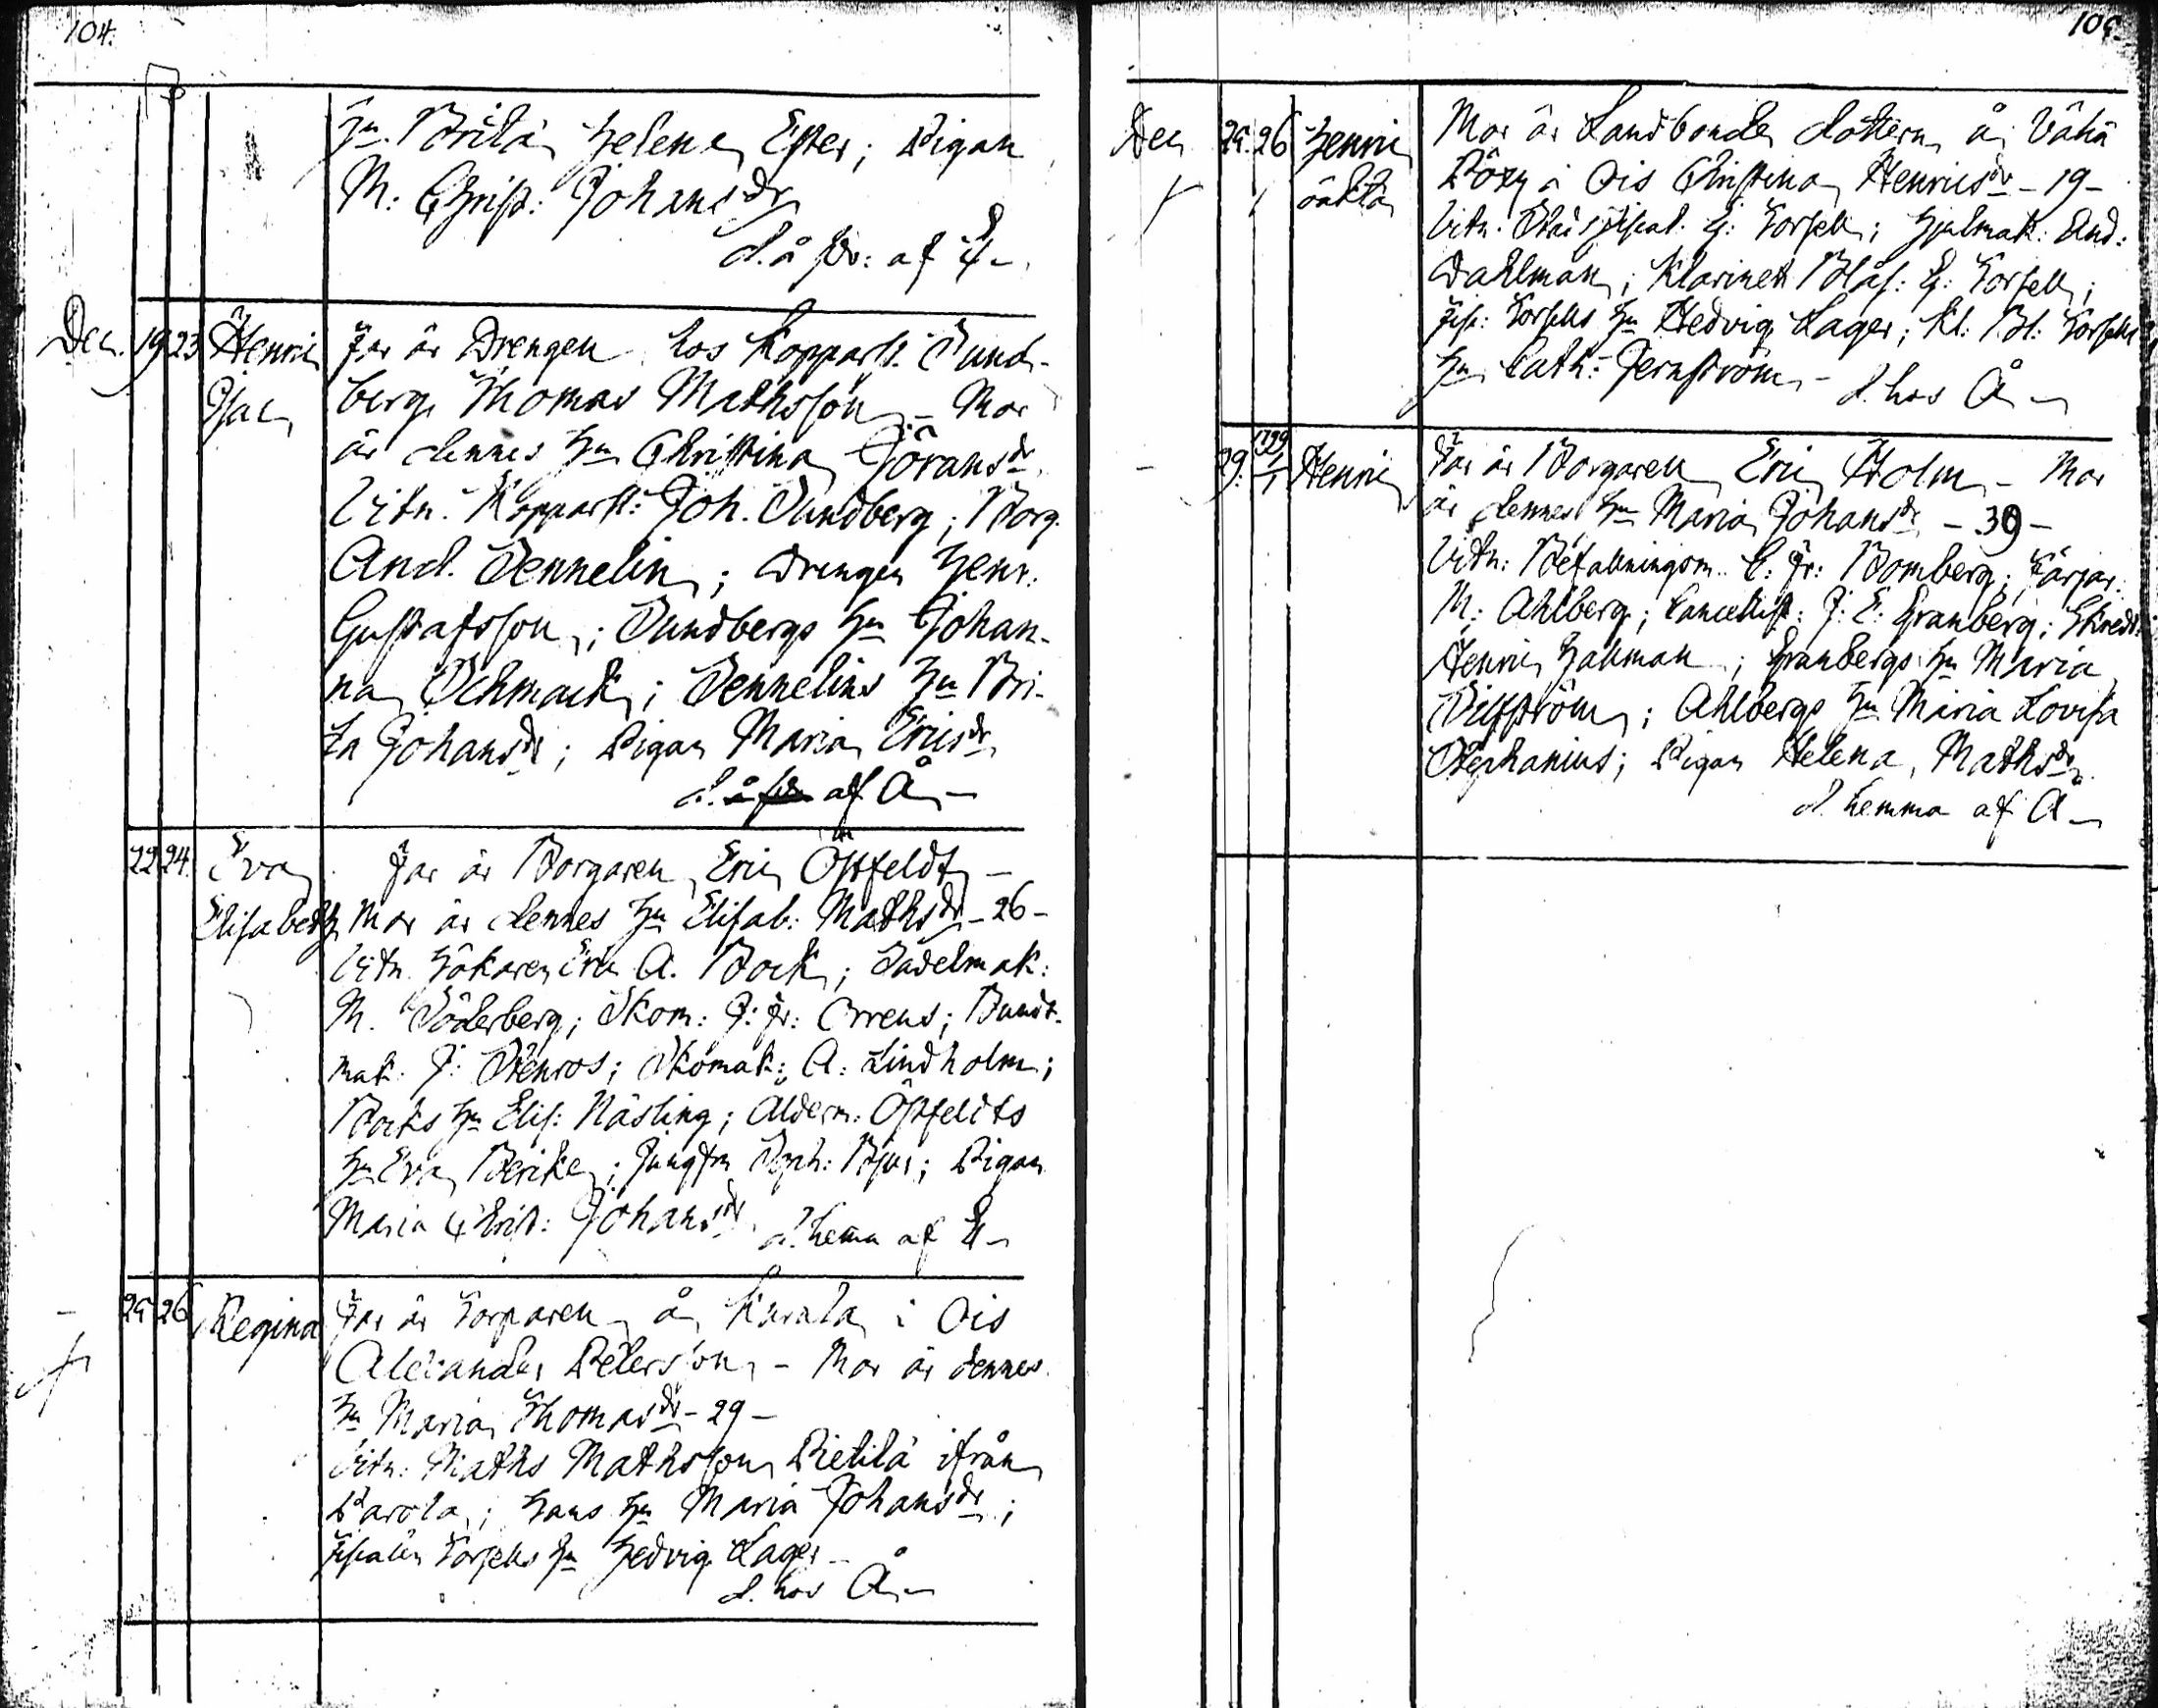 104.
Hu. Brita Helena Ester; Pigan
M: Christ: Johansdr
d. å av: af
Dec. 19 23 Henric Far är Drengen hos Kopparsl. Sund-
Isac berg Thomas Mathsson - Mor
är dennes Hu Christina Göransdr
Vitn. Kopparsl: Joh. Sundberg; Borg.
And. Sennelin; Drengen Henr.
Gustafsson; Sundbergs Hu Johan-
na Schmack; Sennelins Hu Bri-
ta Johansdr; Pigan Maria Ericsdr
d. af Å -
22 24. Eva Far är Borgaren Eric Östfeldt -
Elisabeth Mor är dennes Hu Elisab: Mathsdr - 26 -
Vitn. Hökaren Eric A. Bock; Sadelmak:
M. Söderberg; Skom: J: Fr: Orrens; Bundt-
mak. J: Stenros; Skomak: A: Lindholm;
Bocks Hu Elis: Näsling; Ålderm: Östfeldts
Hu Eva Berike; Jungfru Soph: Bjur; Pigan
Maria Christ: Johansdr d. hema af
- 25 26 Regina Far är Torparen å Kurala i Ois
Alexander Petersson - Mor är dennes
Hu Maria Thomasdr - 29 -
Vitn: Maths Mathsson Pietilä ifrån
Parola; hans Hu Maria Johansdr;
Fiscalen Torsells Hu Hedvig Lager -
d. hos Å -
105.
Dec 25. 26 Henric Mor är Landbonde dottern å Vähä
oäkta i Ois Christina Henricsdr - 19 -
Vitn. Stadsfiscal. G: Torsell; Hjulmak: And:
Dahlman; Klarinett Blås: G: Torsell;
Fisc: Torsells Hu Hedvig Lager; Kl: Bl: Torsells
Hu Cath: Jernström - d. hos Å -
- 29. 1799 1/1 Henric Far är Borgaren Eric Holm - Mor
är dennes Hu Maria Johansdr - 39 -
Vitn: Befallningsm. C: Fr: Bomberg; Färgar.
M: Ahlberg; Cancellist: J: E: Granberg; Skredd:
Henric Hahman; Granbergs Hu Maria
Ahlbergs Hu Maria Lovisa
Stephanius; Pigan Helena Mathsdr
d. hemma af Å -